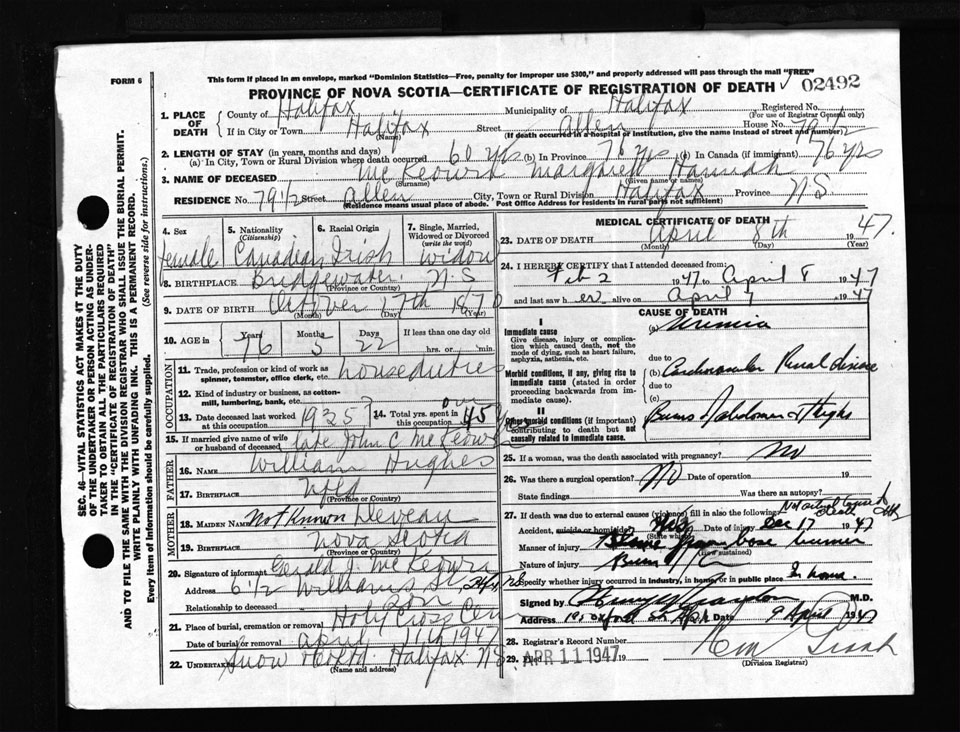 FORM 6
This form if placed in an envelope, marked "Dominion Statistics—Free, penalty for improper use $300," and properly addressed will pass through the mail "FREE"
PROVINCE OF NOVA SCOTIA—CERTIFICATE OF REGISTRATION OF DEATH
02492
1. PLACE OF DEATH
County of Halifax Municipality of Halifax Registered No.
(For use of Registrar General only)
If in City or Town Halifax Street Allen House No. 79 1/2
(Name) (If death occurred in a hospital or institution, give the name instead of street and number)
2. LENGTH OF STAY (in years, months and days)
(a) In City, Town or Rural Division where death occurred 60 yrs (b) In Province 76 yrs (c) In Canada (if immigrant) 76 yrs
3. NAME OF DECEASED McKeown Margaret Hannah
(Surname) (Given name or names)
RESIDENCE No. 79 1/2 Street Allen City, Town or Rural Division Halifax Province N.S
(Residence means usual place of abode. Post Office Address for residents in rural parts not sufficient)
4. Sex
Female
5. Nationality
(Citizenship)
Canadian
6. Racial Origin
Irish
7. Single, Married, Widowed or Divorced
(write the word)
Widow
8. BIRTHPLACE Bridgewater, N.S
(Province or Country)
9. DATE OF BIRTH October 17th 1870
(Month) (Day) (Year)
10. AGE in Years Months Days If less than one day
76 5 22 hrs. or min.
OCCUPATION
11. Trade, profession or kind of work as spinner, teamster, office clerk, etc. house duties
12. Kind of industry or business, as cotton-mill, lumbering, bank, etc.
13. Date deceased last worked at this occupation 1935?
14. Total yrs. spent in this occupation over 45 yrs
15. If married give name of wife or husband of deceased late John C McKeown
FATHER
16. NAME William Hughes
17. BIRTHPLACE Nfld
(Province or Country)
MOTHER
18. MAIDEN NAME Not Known Deveau
19. BIRTHPLACE Nova Scotia
(Province or Country)
20. Signature of informant Gerald J. McKeown
Address 6 1/2 Williams St,
Relationship to deceased Son
21. Place of burial, cremation or removal Holy Cross Cem
Date of burial or removal April 11th 1947
22. UNDERTAKER Snow & Co Ltd. Halifax N.S.
(Name and address)
MEDICAL CERTIFICATE OF DEATH
23. DATE OF DEATH April 8th 1947.
(Month) (Day) (Year)
24. I HEREBY CERTIFY that I attended deceased from:
Feb 2 1947 to April 8 1947
and last saw her alive on April 7 1947
CAUSE OF DEATH
I
Immediate cause
Give disease, injury or complication which caused death, not the mode of dying, such as heart failure, asphyxia, asthenia, etc.
(a) Uremia
due to
Morbid conditions, if any, giving rise to immediate cause (stated in order proceeding backwards from immediate cause).
(b) Cardiovascular Renal disease
due to
(c)
II
Other morbid conditions (if important) contributing to death but not causally related to immediate cause.
Burns of abdomen & thighs
25. If a woman, was the death associated with pregnancy? No
26. Was there a surgical operation? No Date of operation 19
State findings Was there an autopsy?
27. If death was due to external causes (violence) fill in also the following:
Accident, suicide or homicide? Yes Date of injury Dec 17 1947
(State which)
Manner of injury Flame from gas burner
(How sustained)
Nature of injury Burn
Specify whether injury occurred in industry, in home, or in public place In home.
Signed by M.D.
Address Oxford St Date 9 April 1947
28. Registrar's Record Number
29. Filed APR 11 1947 19
(Division Registrar)
SEC. 46—VITAL STATISTICS ACT MAKES IT THE DUTY
OF THE UNDERTAKER OR PERSON ACTING AS UNDER-
TAKER TO OBTAIN ALL THE PARTICULARS REQUIRED
IN THE "CERTIFICATE OF REGISTRATION OF DEATH"
AND TO FILE THE SAME WITH THE DIVISION REGISTRAR WHO SHALL ISSUE THE BURIAL PERMIT.
WRITE PLAINLY WITH UNFADING INK. THIS IS A PERMANENT RECORD.
Every item of Information should be carefully supplied. (See reverse side for instructions.)